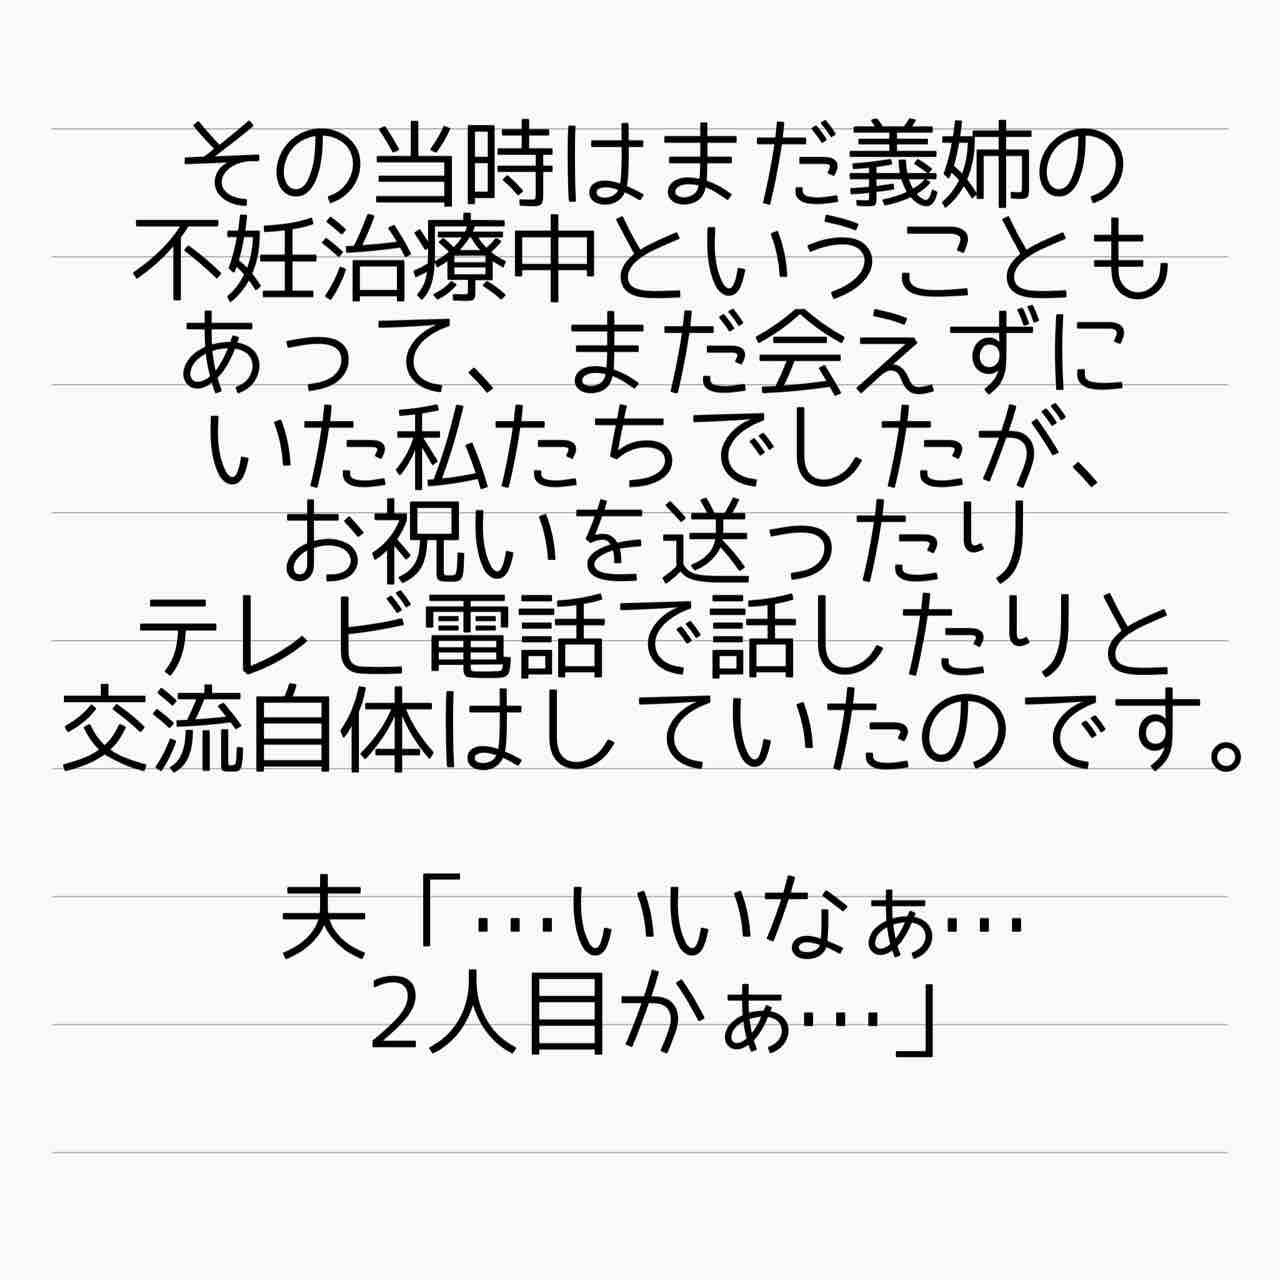 その当時はまだ義姉の
不妊治療中ということも
あって、まだ会えずに
いた私たちでしたが、
お祝いを送ったり
テレビ電話で話したりと
交流自体はしていたのです。
夫「…いいなぁ…
2人目かぁ…」